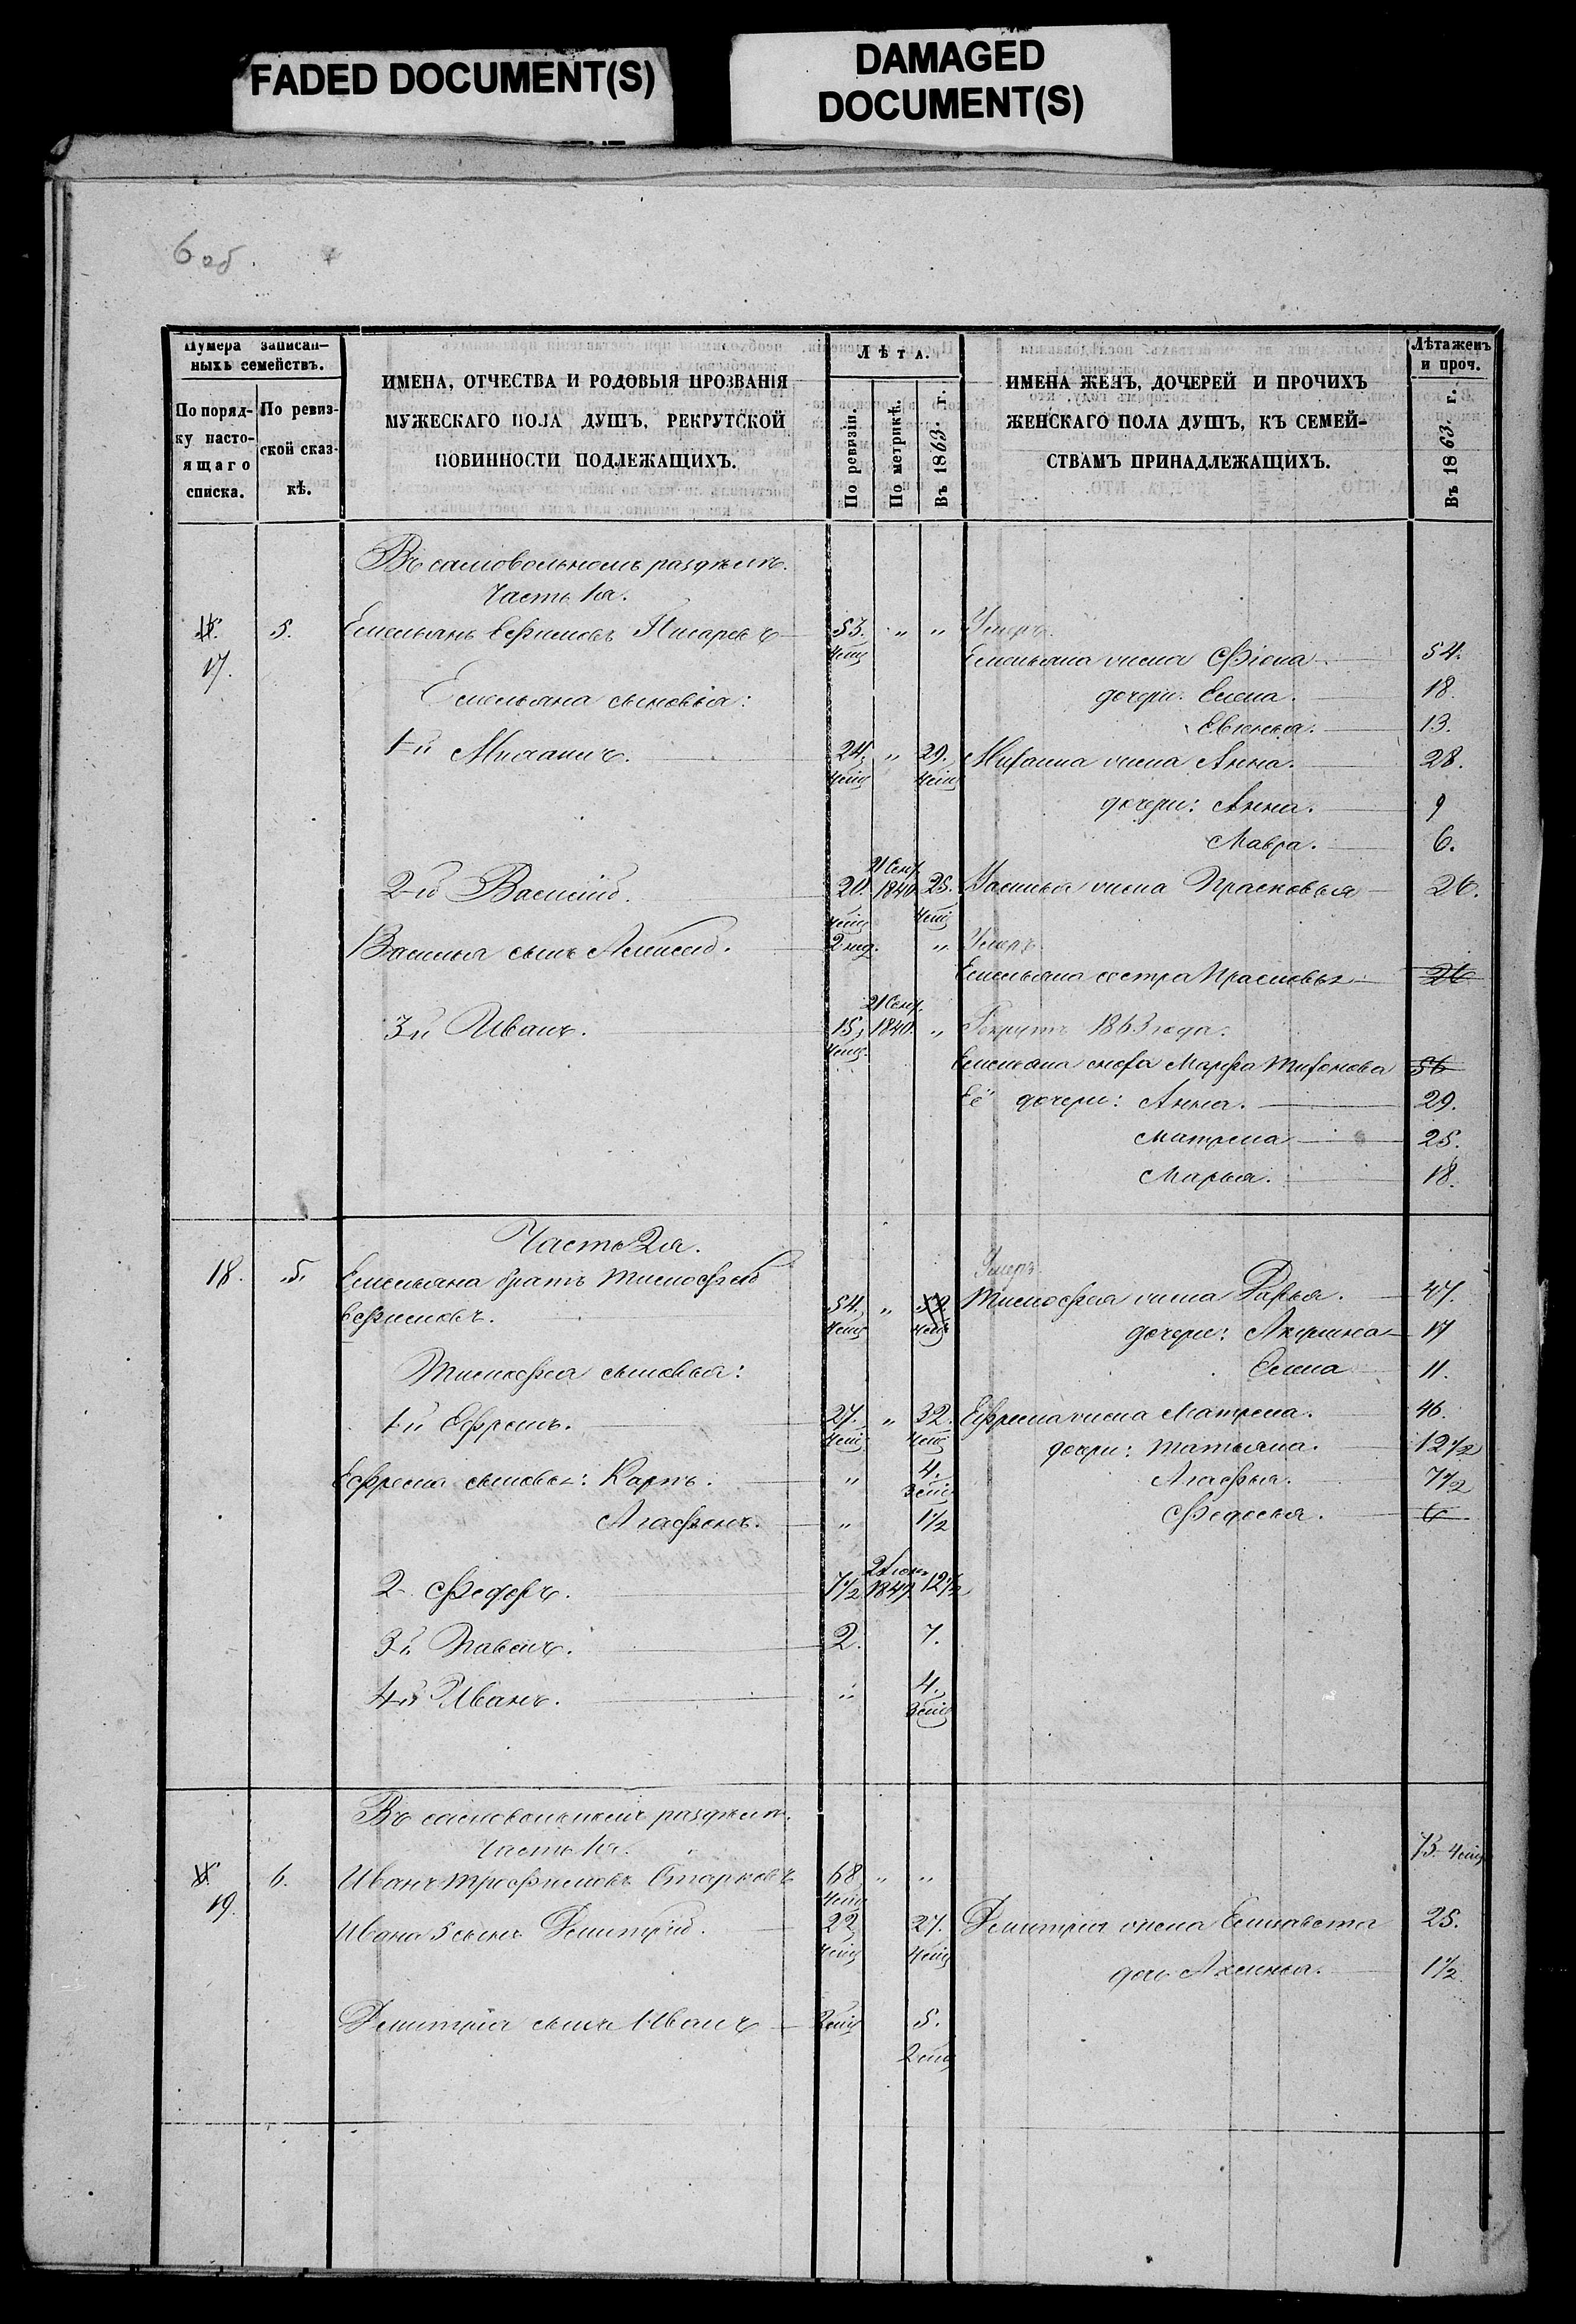 FADED DOCUMENT(S)
DAMAGED
DOCUMENT(S)
6 об.
Нумера записан-
ныхъ семействъ.
По поряд-
ку насто-
ящаго
списка.
По ревиз-
ской сказ-
кѣ.
ИМЕНА, ОТЧЕСТВА И РОДОВЫЯ ПРОЗВАНІЯ
МУЖЕСКАГО ПОЛА ДУШЪ, РЕКРУТСКОЙ
ПОВИННОСТИ ПОДЛЕЖАЩИХЪ.
Лѣта.
По ревизіи.
По метрикѣ.
Въ 1863 г.
ИМЕНА ЖЕНЪ, ДОЧЕРЕЙ И ПРОЧИХЪ
ЖЕНСКАГО ПОЛА ДУШЪ, КЪ СЕМЕЙ-
СТВАМЪ ПРИНАДЛЕЖАЩИХЪ.
Лѣта женъ
и проч.
Въ 1863 г.
Въ самовольномъ раздѣлѣ.
Часть 1я.
17. 5. Емельянъ Ефимовъ Писаревъ 53. " " Умеръ.
4 мѣц Емельяна жена Фіона 54.
Емельяна сыновья: дочери: Елена. 18.
Евгенья. 13.
1й Михаилъ. 24. " 29. Михаила жена Анна. 28.
4 мѣц 4 мѣц
дочери: Анна. 9
Мавра. 6.
21 Сент.
2й Василій. 20. 1840 25. Василья жена Прасковья 26.
4 мѣц 4 мѣц
Василья сынъ Алексѣй. 2 нед. " Умеръ.
Емельяна сестра Прасковья 26
21 Сент.
3й Иванъ. 15, 1840. " Рекрутъ 1863 года.
4 мѣц. Емельяна сноха Марфа 56
Её дочери: Анна. 29.
Матрена 25.
Марья. 18.
Часть 2я.
18. 5. Емельяна братъ Тимофей Умеръ.
Ефимовъ. 54. " 59. Тимофея жена Дарья. 47.
4 мѣц 4 мѣц дочери: Акулина 17
Тимофея сыновья: Елена 11.
1й Ефремъ. 27. " 32. Ефрема жена Матрена. 46.
4 мѣц 4 мѣц дочери: Татьяна. 12½
Ефрема сыновья: Карпъ. " 4. Агафья. 7½
3 мѣц
Агафонъ. " 1½ Федосья. 6
2. Федоръ. 7½ 1847 12½
3й Павелъ. 2. 7.
4й Иванъ. " 4.
3 мѣц
Въ самовольномъ раздѣлѣ.
Часть 1я. 73. 4 мѣц
19. 6. Иванъ Трофимовъ Старковъ 68 " "
4 мѣц
Ивана 5 сынъ Дмитрій. 22 27. Дмитрія жена Елизавета 25.
4 мѣц 4 мѣц дочь Аксинья. 1½.
Дмитрія сынъ Иванъ 2 мѣц 5.
2 мѣц